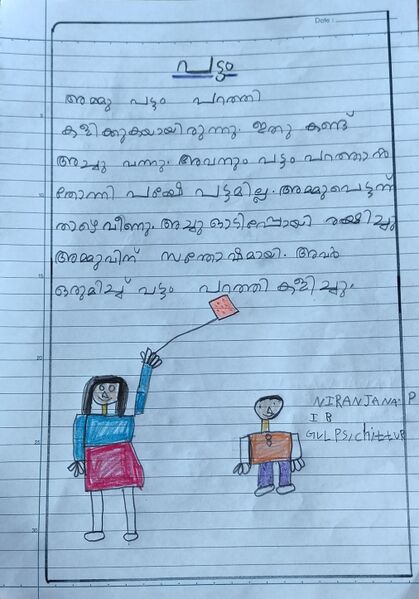 Date :
പട്ടം
അമ്മു പട്ടം പറത്തി
കളിക്കുകയായിരുന്നു. ഇതു കണ്ട്
അച്ചു വന്നു. അവനും പട്ടം പറത്താൻ
തോന്നി പക്ഷേ പട്ടമില്ല. അമ്മുപെട്ടന്ന്
താഴെ വീണു. അച്ചു ഓടിപ്പോയി രക്ഷിച്ചു
അമ്മുവിന് സന്തോഷമായി. അവർ
ഒരുമിച്ച് പട്ടം പറത്തി കളിച്ചു.
NIRANJANA. P
I B
GVLPS, chittur